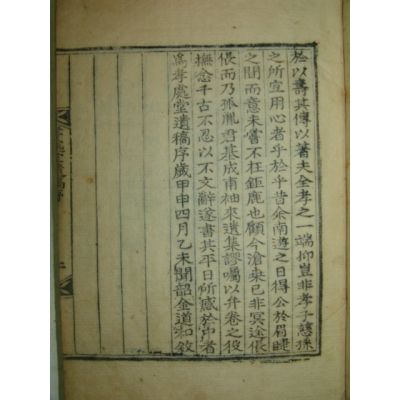 於以壽其傳以著夫全孝之一端抑豈非孝子慈孫
之所宜用心者乎於乎昔余南遊之日得公於眉睫
之間而意未嘗不在鉅鹿也顧今滄桑已非冥途倀
倀而乃孤胤君基成甫袖來遺集謬囑以弁卷之役
撫念千古不忍以不文辭遂書其平日所感於中者
爲孝處堂遺稿序歲甲申四月乙未聞韶金道和敘